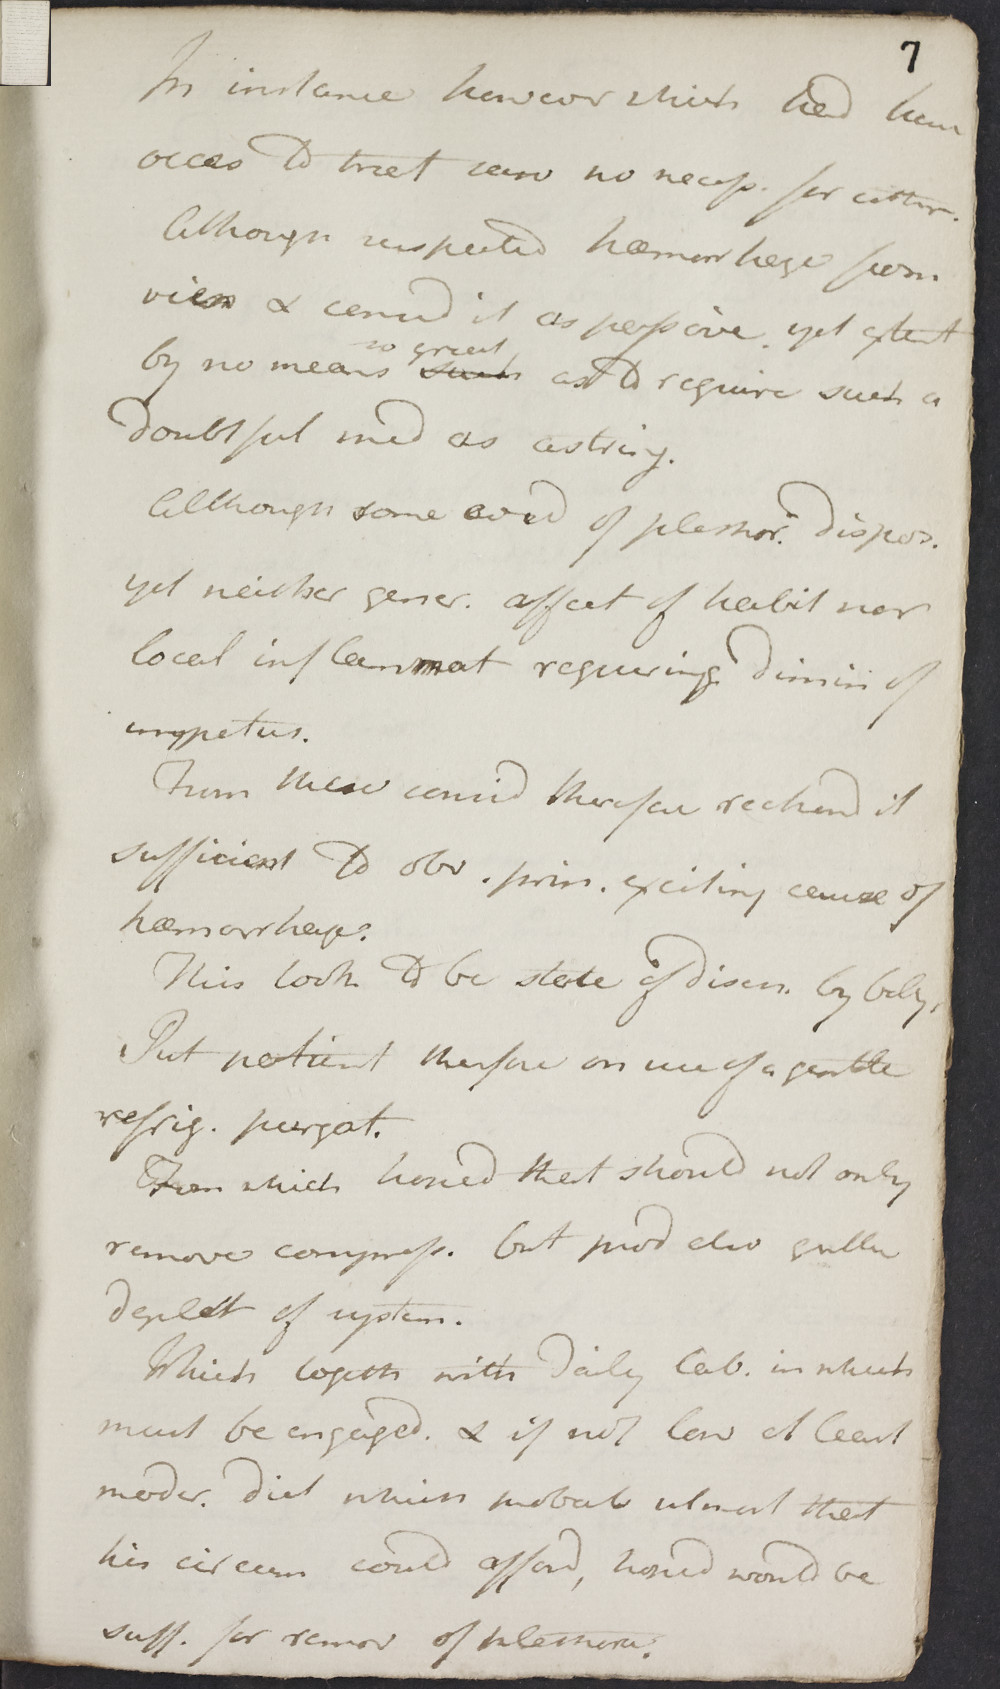 7
In instance however which had here
occas to treat saw no necess. for either.
Although suspected hæmorrhage from
vien & consid it as passive. yet extent
by no means so great such as to require such a
doubtful med as astring.
Although some evid of plethor. dispos.
yet neither gener. affect of habit nor
local inflammat requiring dimin of
impetus.
From these consid therefore reckond it
sufficient to obv. prin. exciting cause of
hæmorrhage.
This took to be state of disen. by bely.
Put patient therfore on use of a gentle
refrig. purgat.
From which hoped that should not only
remove compress. but prod also gentle
deplet of system.
Which togeth with daily lab. in which
must be engaged. & if not low at least
moder. diet which probab utmost that
his circum could afford, hoped would be
suff. for remov of plethora.